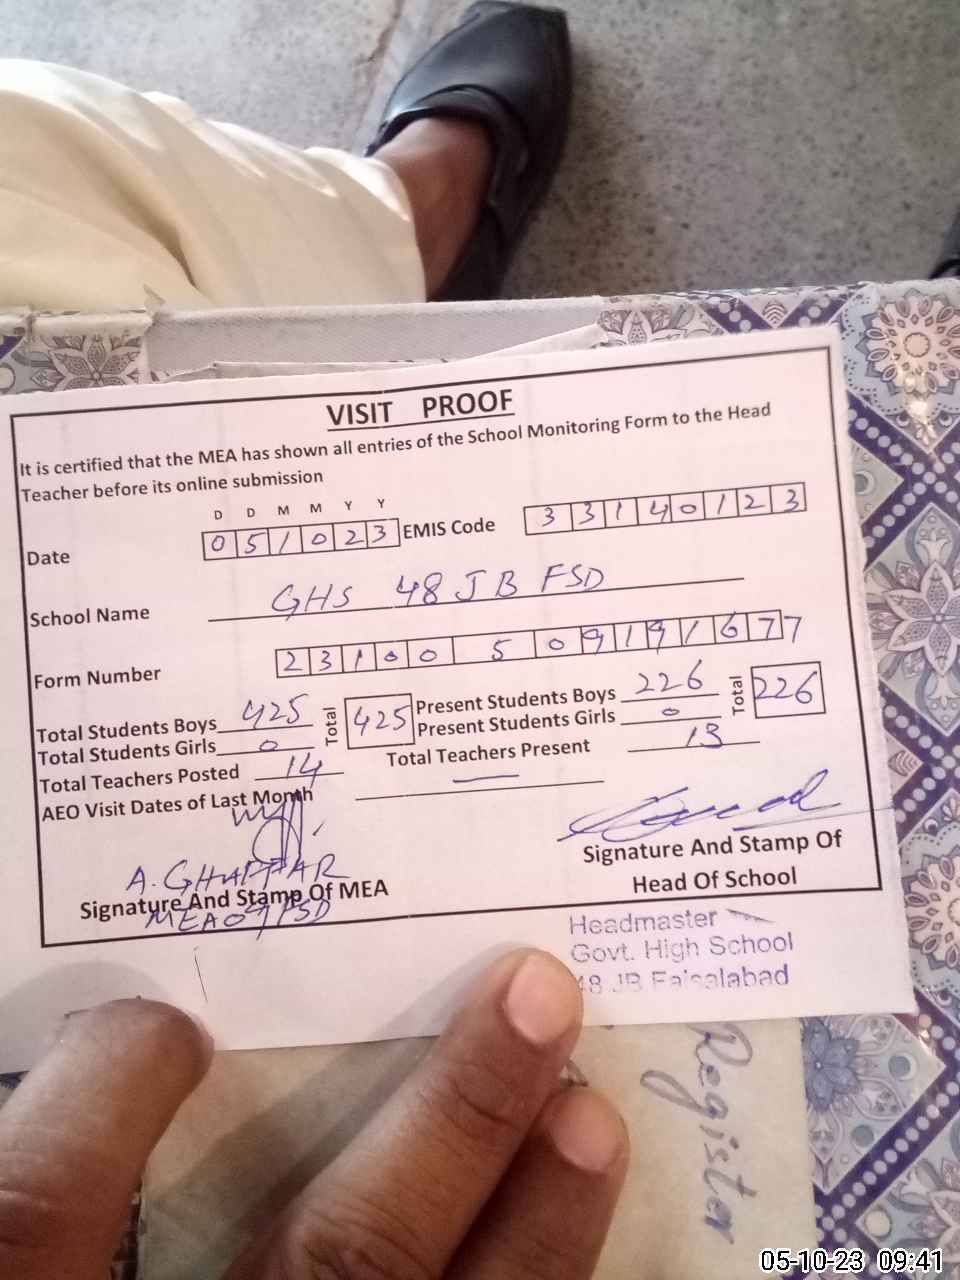 VISIT PROOF
It is certified that the MEA has shown all entries of the School Monitoring Form to the Head
Teacher before its online submission
D D M M Y Y
Date 051023 EMIS Code 33140123
School Name GHS 48 JB FSD
Form Number 23100 5 09191677
Total Students Boys 425 Total 425 Present Students Boys 226 Total 226
Total Students Girls 0 Present Students Girls 0
Total Teachers Posted 14 Total Teachers Present 13
AEO Visit Dates of Last Month —
A. GHAFFAR
Signature And Stamp Of MEA
MEA 07 FSD
Signature And Stamp Of
Head Of School
Headmaster
Govt. High School
48 JB Faisalabad
Register
05-10-23 09:41